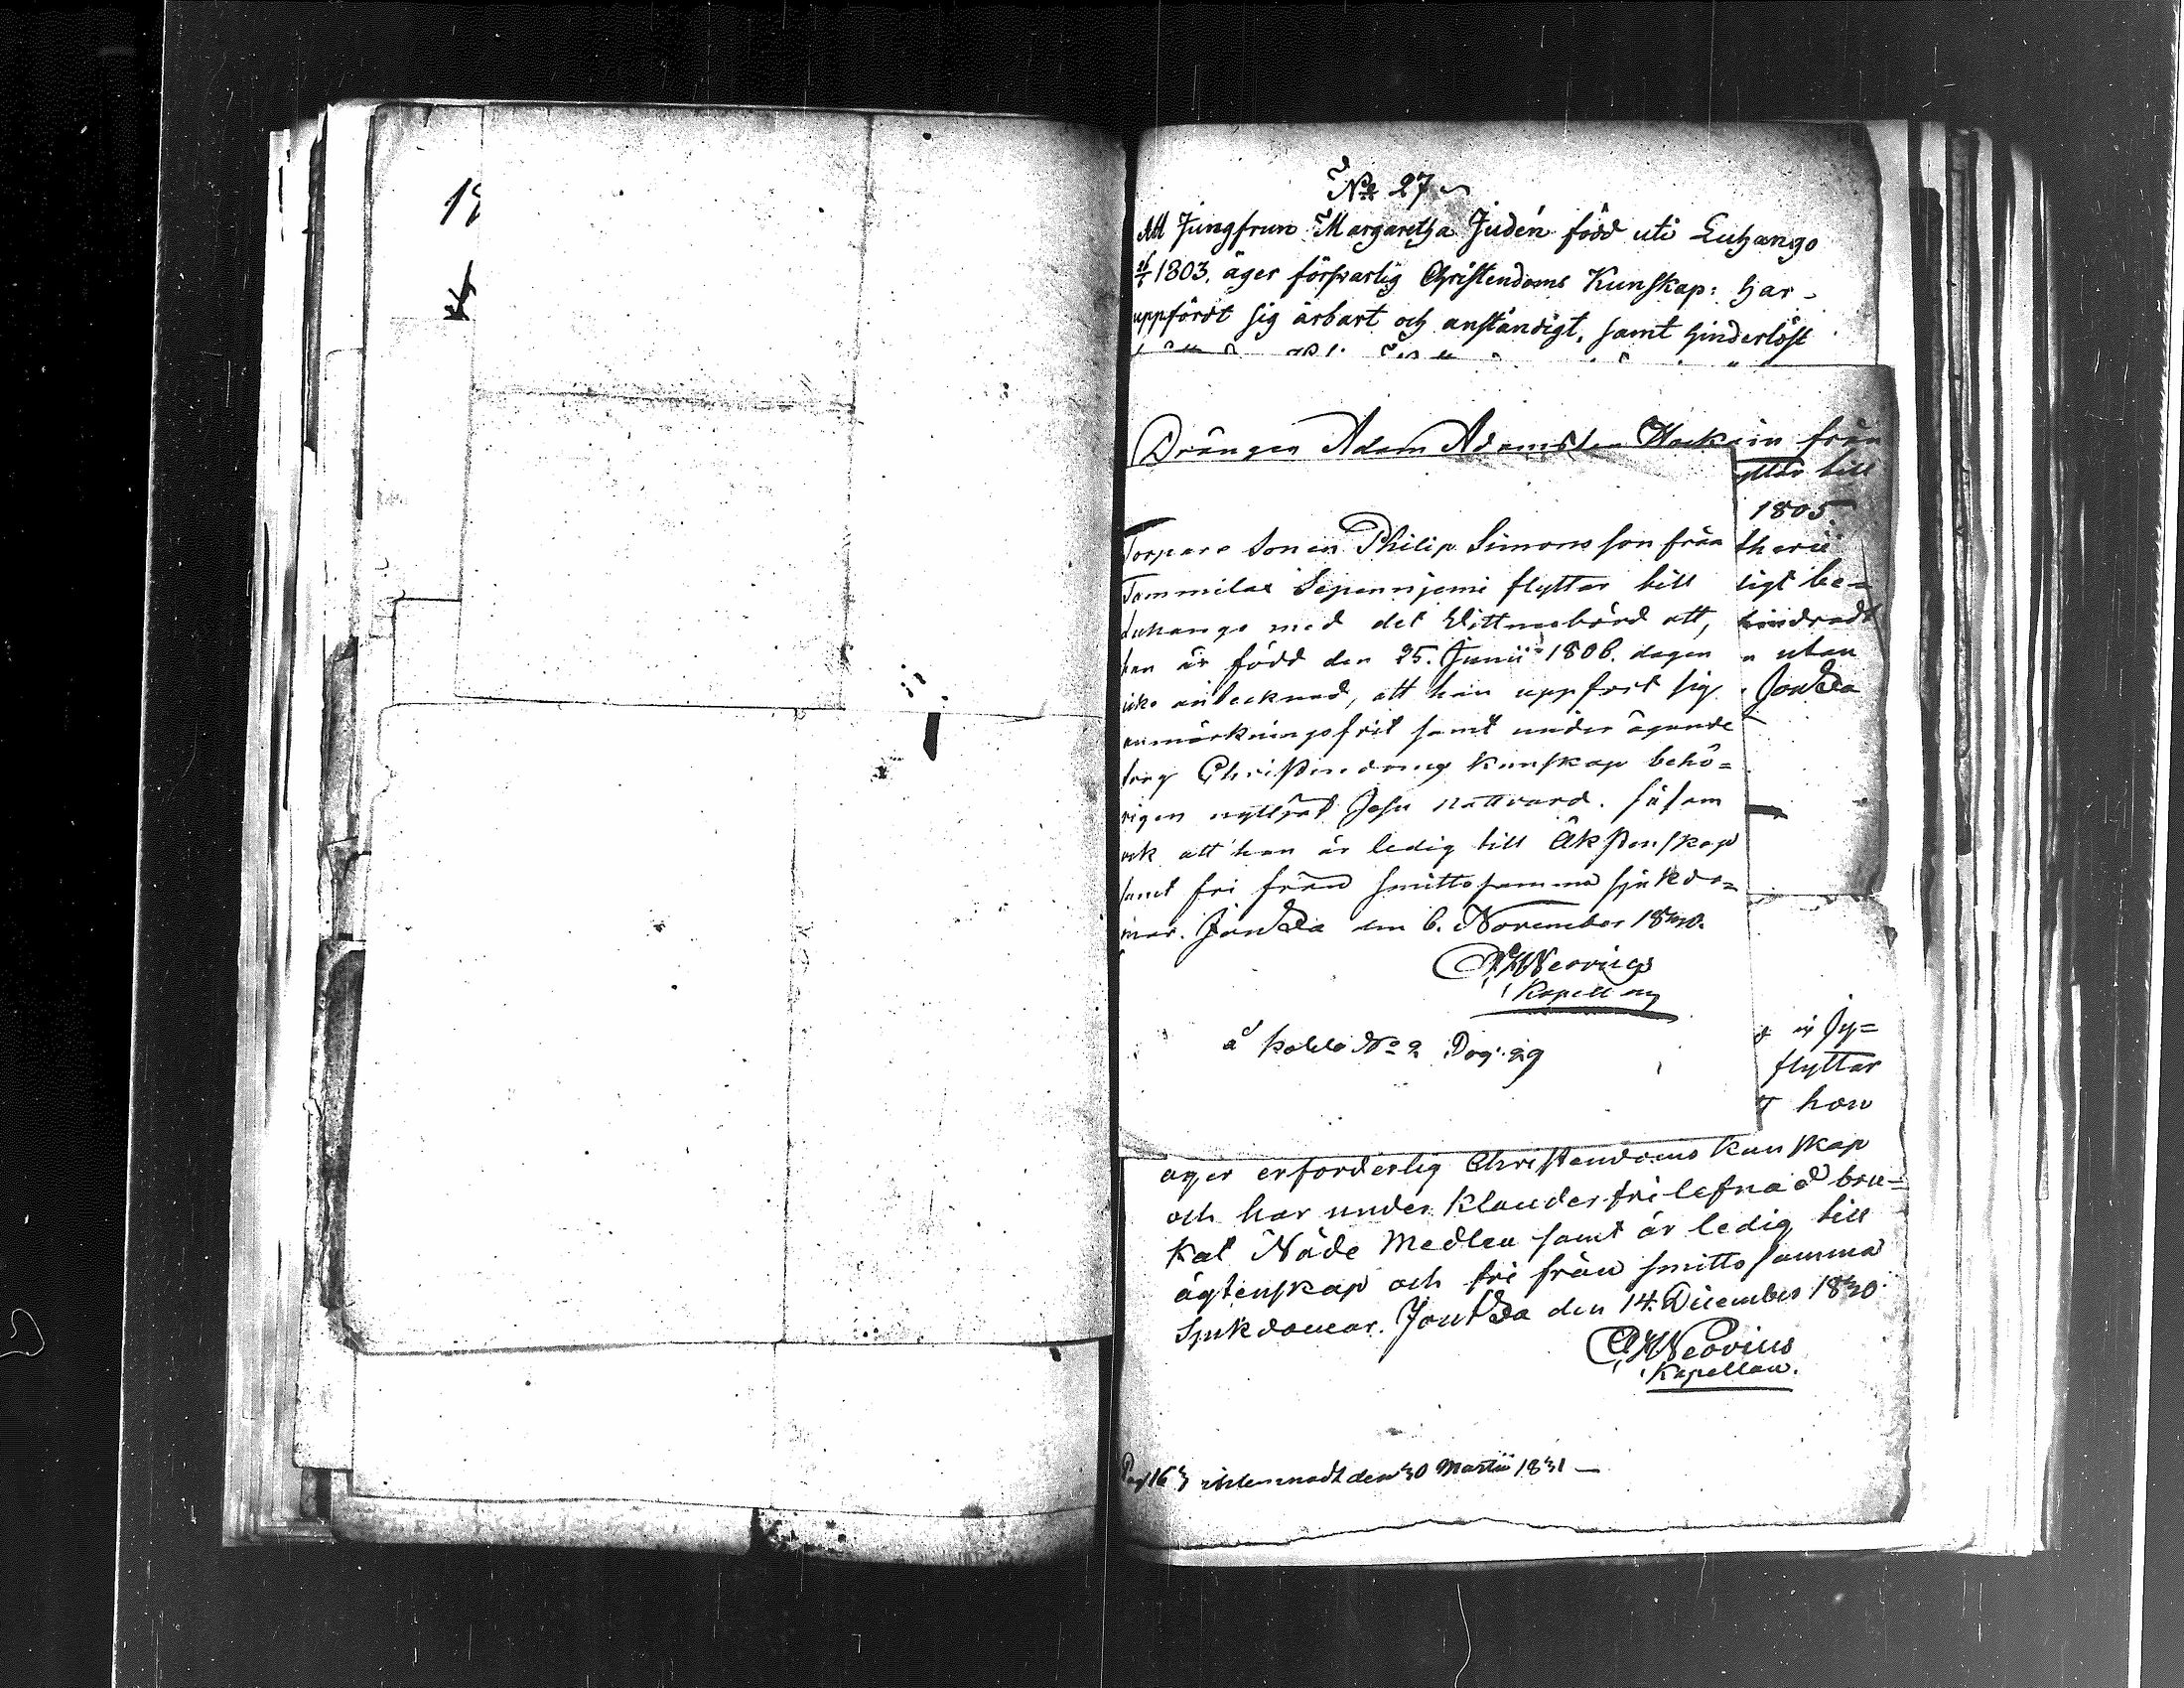 No 27
Att Jungfrun Margaretha Judén född uti Luhango
1803. äger försvarlig Christendoms Kunskap: har
uppfördt sig ärbart och anständigt, samt hinderlöst
Drängen Adam Adamsson från
yttar till
1805
Torpare Sonen Philip Simonsson från
Tammilax Sepänniemi flyttar till
ligt be=
Luhango med det Vittnesbörd att,
hindradt
han är född den 25. Junii 1806. dagen
n utan
icke antecknad, att han uppfört sig
Joutza
anmärkningsfrit samt under ägande
Christendoms kunskap behö=
rigen nyttjat Jesu nattvard. såsom
ock att han är ledig till Äktenskap
samt fri från smittosamma sjukdo=
mar. Joutza den 6. November 1830.
Neovius
Kapellan
å No 2 Pag. 29
flyttar
hon
äger erforderlig Christendoms Kunskap
och har under klanderfri lefnad bru=
kat Nåde Medlen samt är ledig till
ägtenskap och fri från smittosamma
Sjukdomar. Joutza den 14. December 1830.
Neovius
Kapellan.
Pag 163 den 30 Martii 1831